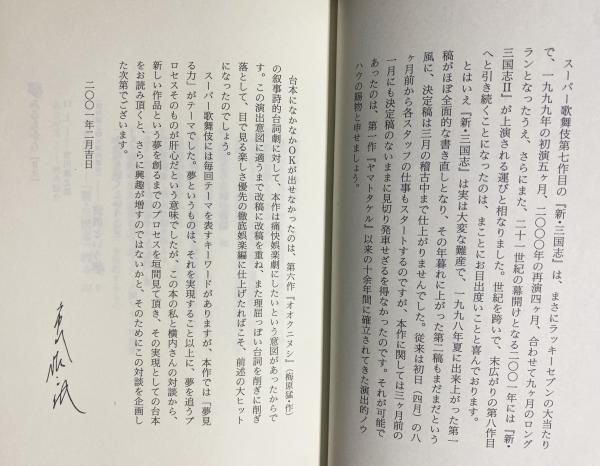 スーパー歌舞伎第七作目の『新・三国志』は、まさにラッキーセブンの大当たり
で、一九九九年の初演五ヶ月、二〇〇〇年の再演四ヶ月、合わせて九ヶ月のロング
ランとなったうえ、さらにまた、二十一世紀の幕開けとなる二〇〇一年には『新・
三国志Ⅱ』が上演される運びと相なりました。世紀を跨いで、末広がりの第八作目
へと引き続くことになったのは、まことにお目出度いことと喜んでおります。
とはいえ『新・三国志』は実は大変な難産で、一九九八年夏に出来上がった第一
稿がほぼ全面的な書き直しとなり、その年暮れに上がった第二稿もまだまだという
風に、決定稿は三月の稽古中まで仕上がりませんでした。従来は初日（四月）の八
ヶ月前から各スタッフの仕事もスタートするのですが、本作に関しては三ヶ月前の
一月にも決定稿のないままに見切り発車せざるを得なかったのです。それが可能で
あったのは、第一作『ヤマトタケル』以来の十余年間に確立されてきた演出的ノウ
ハウの賜物と申せましょう。
台本になかなかOKが出せなかったのは、第六作『オオクニヌシ』（梅原猛・作）
の叙事詩的台詞劇に対して、本作は痛快娯楽劇にしたいという意図があったからで
す。この演出意図に適うまで改稿に改稿を重ね、また理屈っぽい台詞を削ぎに削ぎ
落として、目で見る楽しさ優先の徹底娯楽編に仕上げたればこそ、前述の大ヒット
になったのでしょう。
スーパー歌舞伎には毎回テーマを表すキーワードがありますが、本作では「夢見
る力」がテーマでした。夢というものは、それを実現すること以上に、夢を追うプ
ロセスそのものが肝心だという意味でしたが、この本の私と横内さんの対談から、
新しい作品という夢を創るまでのプロセスを垣間見て頂き、その実現としての台本
をお読み頂くと、さらに興趣が増すのではないかと、そのためにこの対談を企画し
た次第でございます。
二〇〇一年二月吉日